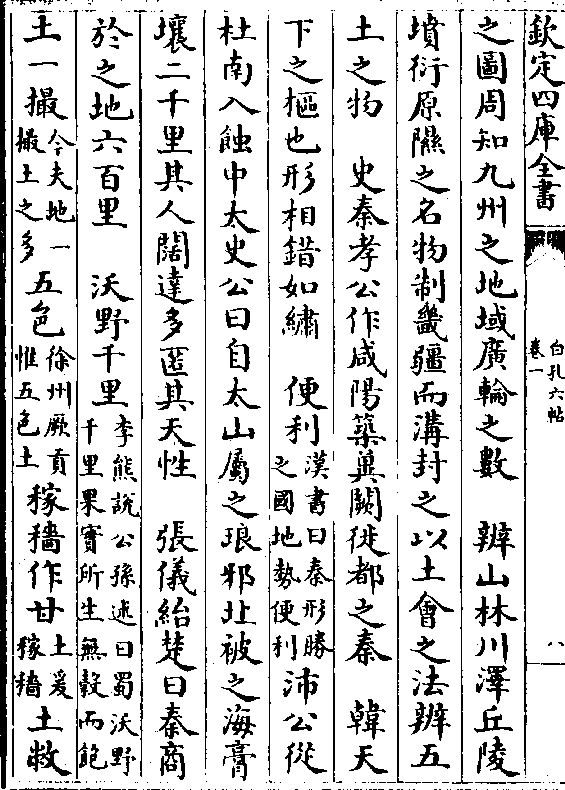 欽定四庫全書
白孔六帖
卷一
八
之圖周知九州之地域廣輪之數　辨山林川澤丘陵
墳衍原隰之名物制畿疆而溝封之以土會之法辨五
土之物　史秦孝公作咸陽築兾闕徙都之秦　韓天
下之樞也形相錯如繡　便利漢書曰秦形勝之國地勢便利沛公從
杜南入蝕中太史公曰自太山屬之琅邪北被之海膏
壤二千里其人闊達多匿其天性　張儀紿楚曰秦商
於之地六百里　沃野千里李熊說公孫述曰蜀沃野千里果實所生無穀而飽
土一撮今夫地一撮土之多五色徐州厥貢惟五色土稼穡作甘土爰稼穡土敝